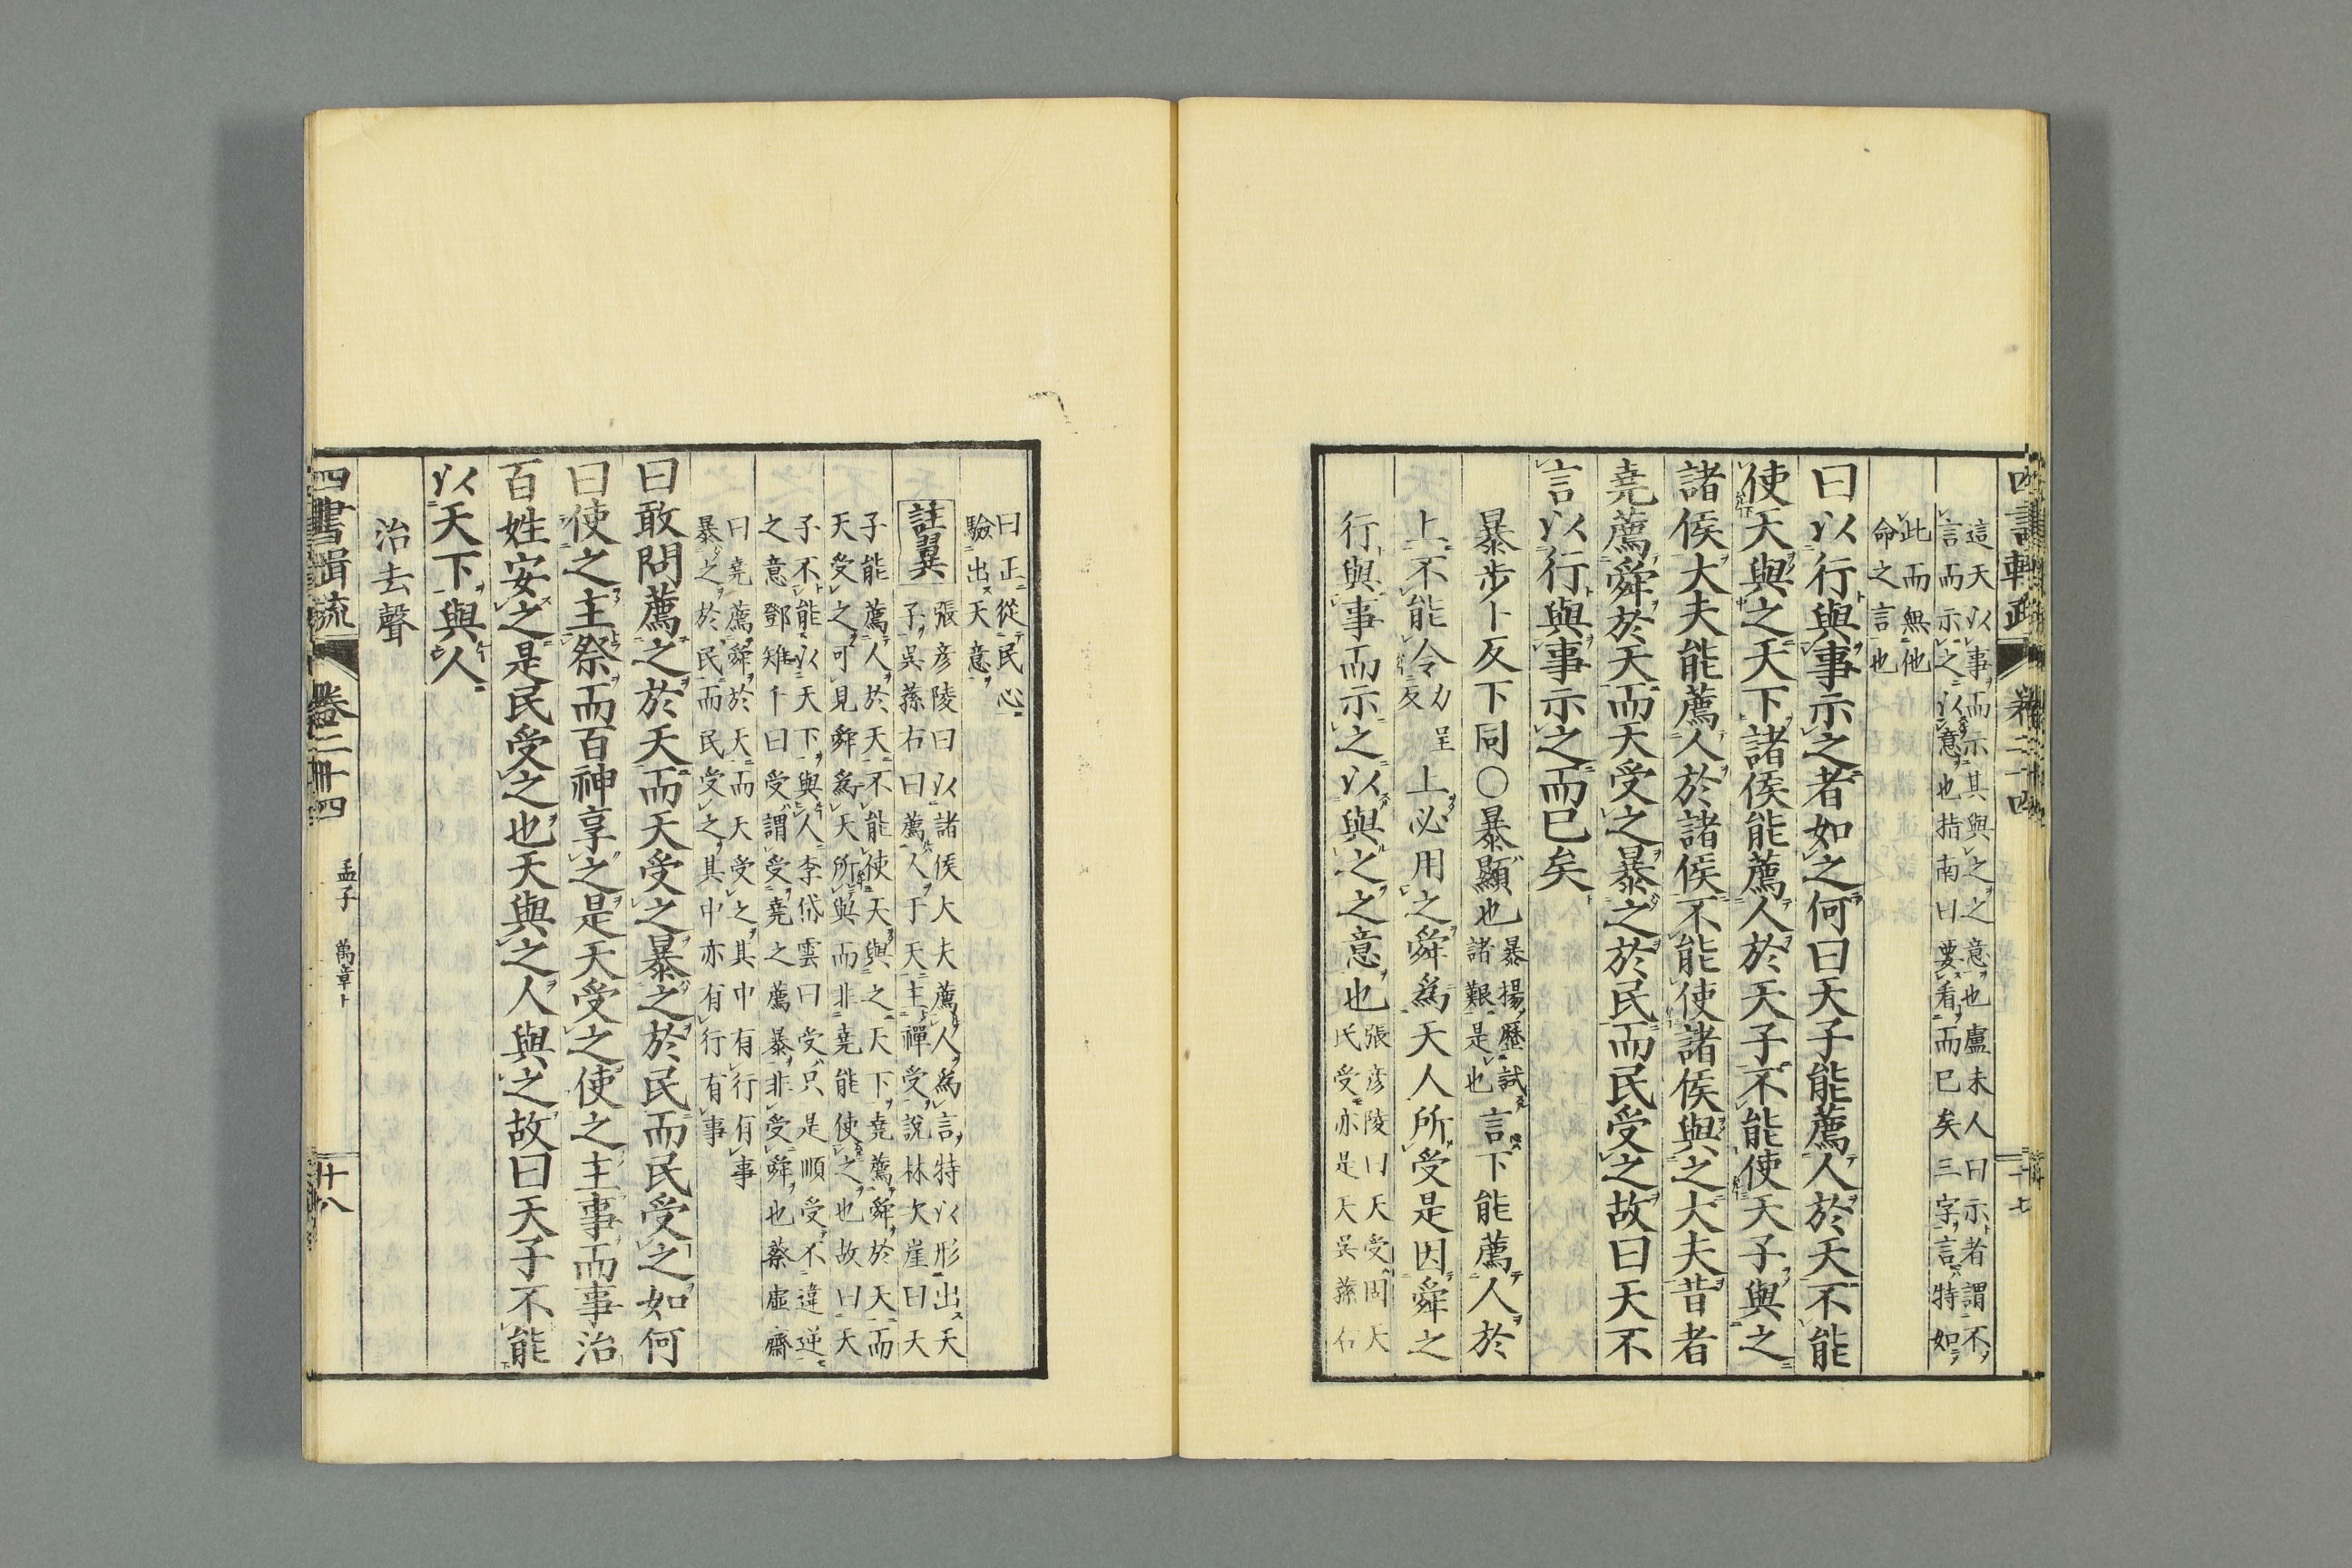 這天以事而示其與之之意也盧未人曰示者謂不
言而示之以意也指南曰要看而已矣三字言特如
此而無他
命之言也
曰以行與事示之者如之何曰天子能薦人於天不能
使天與之天下諸侯能薦人於天子不能使天子與之
諸侯大夫能薦人於諸侯不能使諸侯與之大夫昔者
堯薦舜於天而天受之暴之於民而民受之故曰天不
言以行與事示之而已矣
暴步卜反下同〇暴顯也暴揚歷試諸艱是也言下能薦人於
上不能令力呈反上必用之舜為天人所受是因舜之
行與事而示之以與之之意也張彥陵曰天受固天
氏受亦是天吳蓀右
曰正從民心
驗出天意
註翼 張彥陵曰以諸侯大夫薦人為言特以形出天
子吳蓀右曰薦人于天主禪受說林次崖曰天
子能薦人於天不能使天與之天下堯薦舜於天而
天受之可見舜為天所與而非堯能使之也故曰天
子不能以天下與人李岱雲曰受只是順受不違逆
之意鄧雉千曰受謂受堯之薦暴非受舜也蔡虛齋
曰堯薦舜於天而天受之其中有行有事
暴之於民而民受之其中亦有行有事
曰敢問薦之於天而天受之暴之於民而民受之如何
曰使之主祭而百神享之是天受之使之主事而事治
百姓安之是民受之也天與之人與之故曰天子不能
以天下與人
治去聲
四書輯疏 卷二十四 孟子 萬章上 廿八